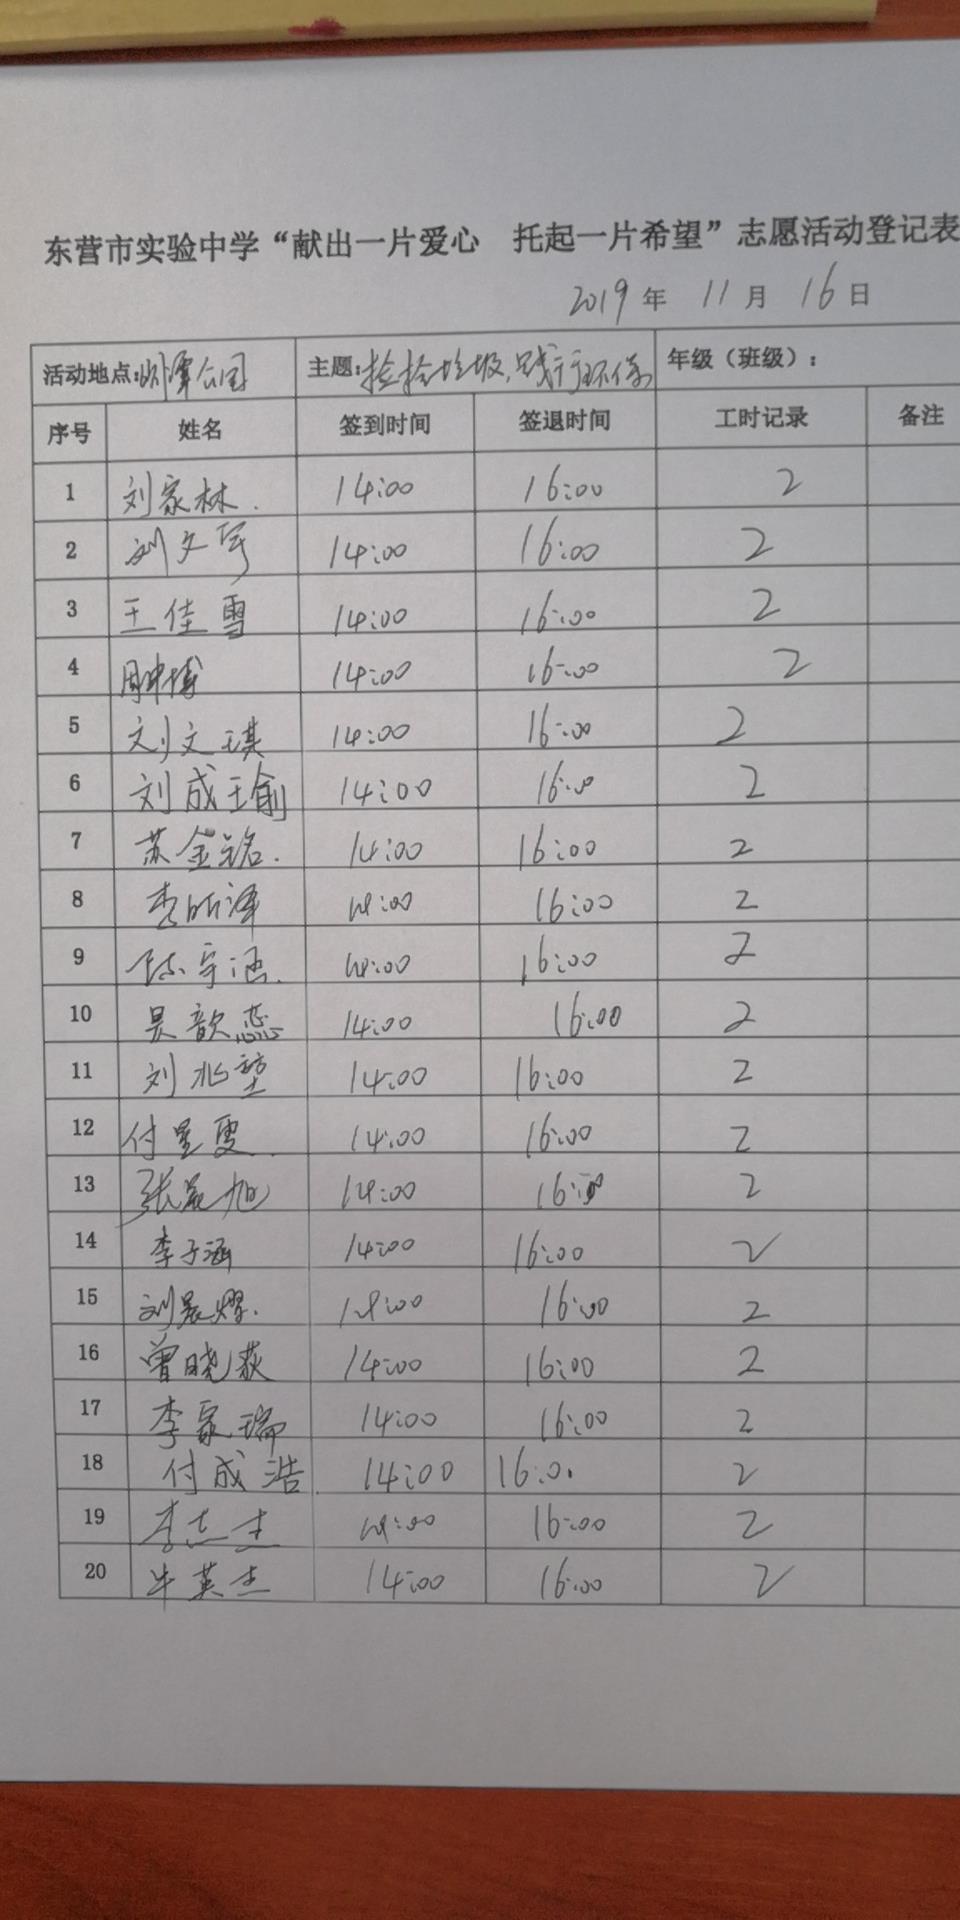 东营市实验中学“献出一片爱心 托起一片希望”志愿活动登记表
2019年 11月 16日
活动地点: 公园 主题:捡拾垃圾,践行环保 年级（班级）:
序号 姓名 签到时间 签退时间 工时记录 备注
1 刘家林. 14:00 16:00 2
2 刘文宇 14:00 16:00 2
3 王佳雪 14:00 16:00 2
4 周坤博 14:00 16:00 2
5 刘文琪 14:00 16:00 2
6 刘成瑜 14:00 16:00 2
7 苏金铭. 14:00 16:00 2
8 李昕泽 14:00 16:00 2
9 陈宇涵. 14:00 16:00 2
10 吴歆蕊 14:00 16:00 2
11 刘兆堃 14:00 16:00 2
12 付星雯. 14:00 16:00 2
13 张 旭 14:00 16:00 2
14 李子涵 14:00 16:00 2
15 刘晨熠. 14:00 16:00 2
16 曾晓荻 14:00 16:00 2
17 李家瑞 14:00 16:00 2
18 付成浩. 14:00 16:0. 2
19 李志 14:00 16:00 2
20 牛英杰 14:00 16:00 2